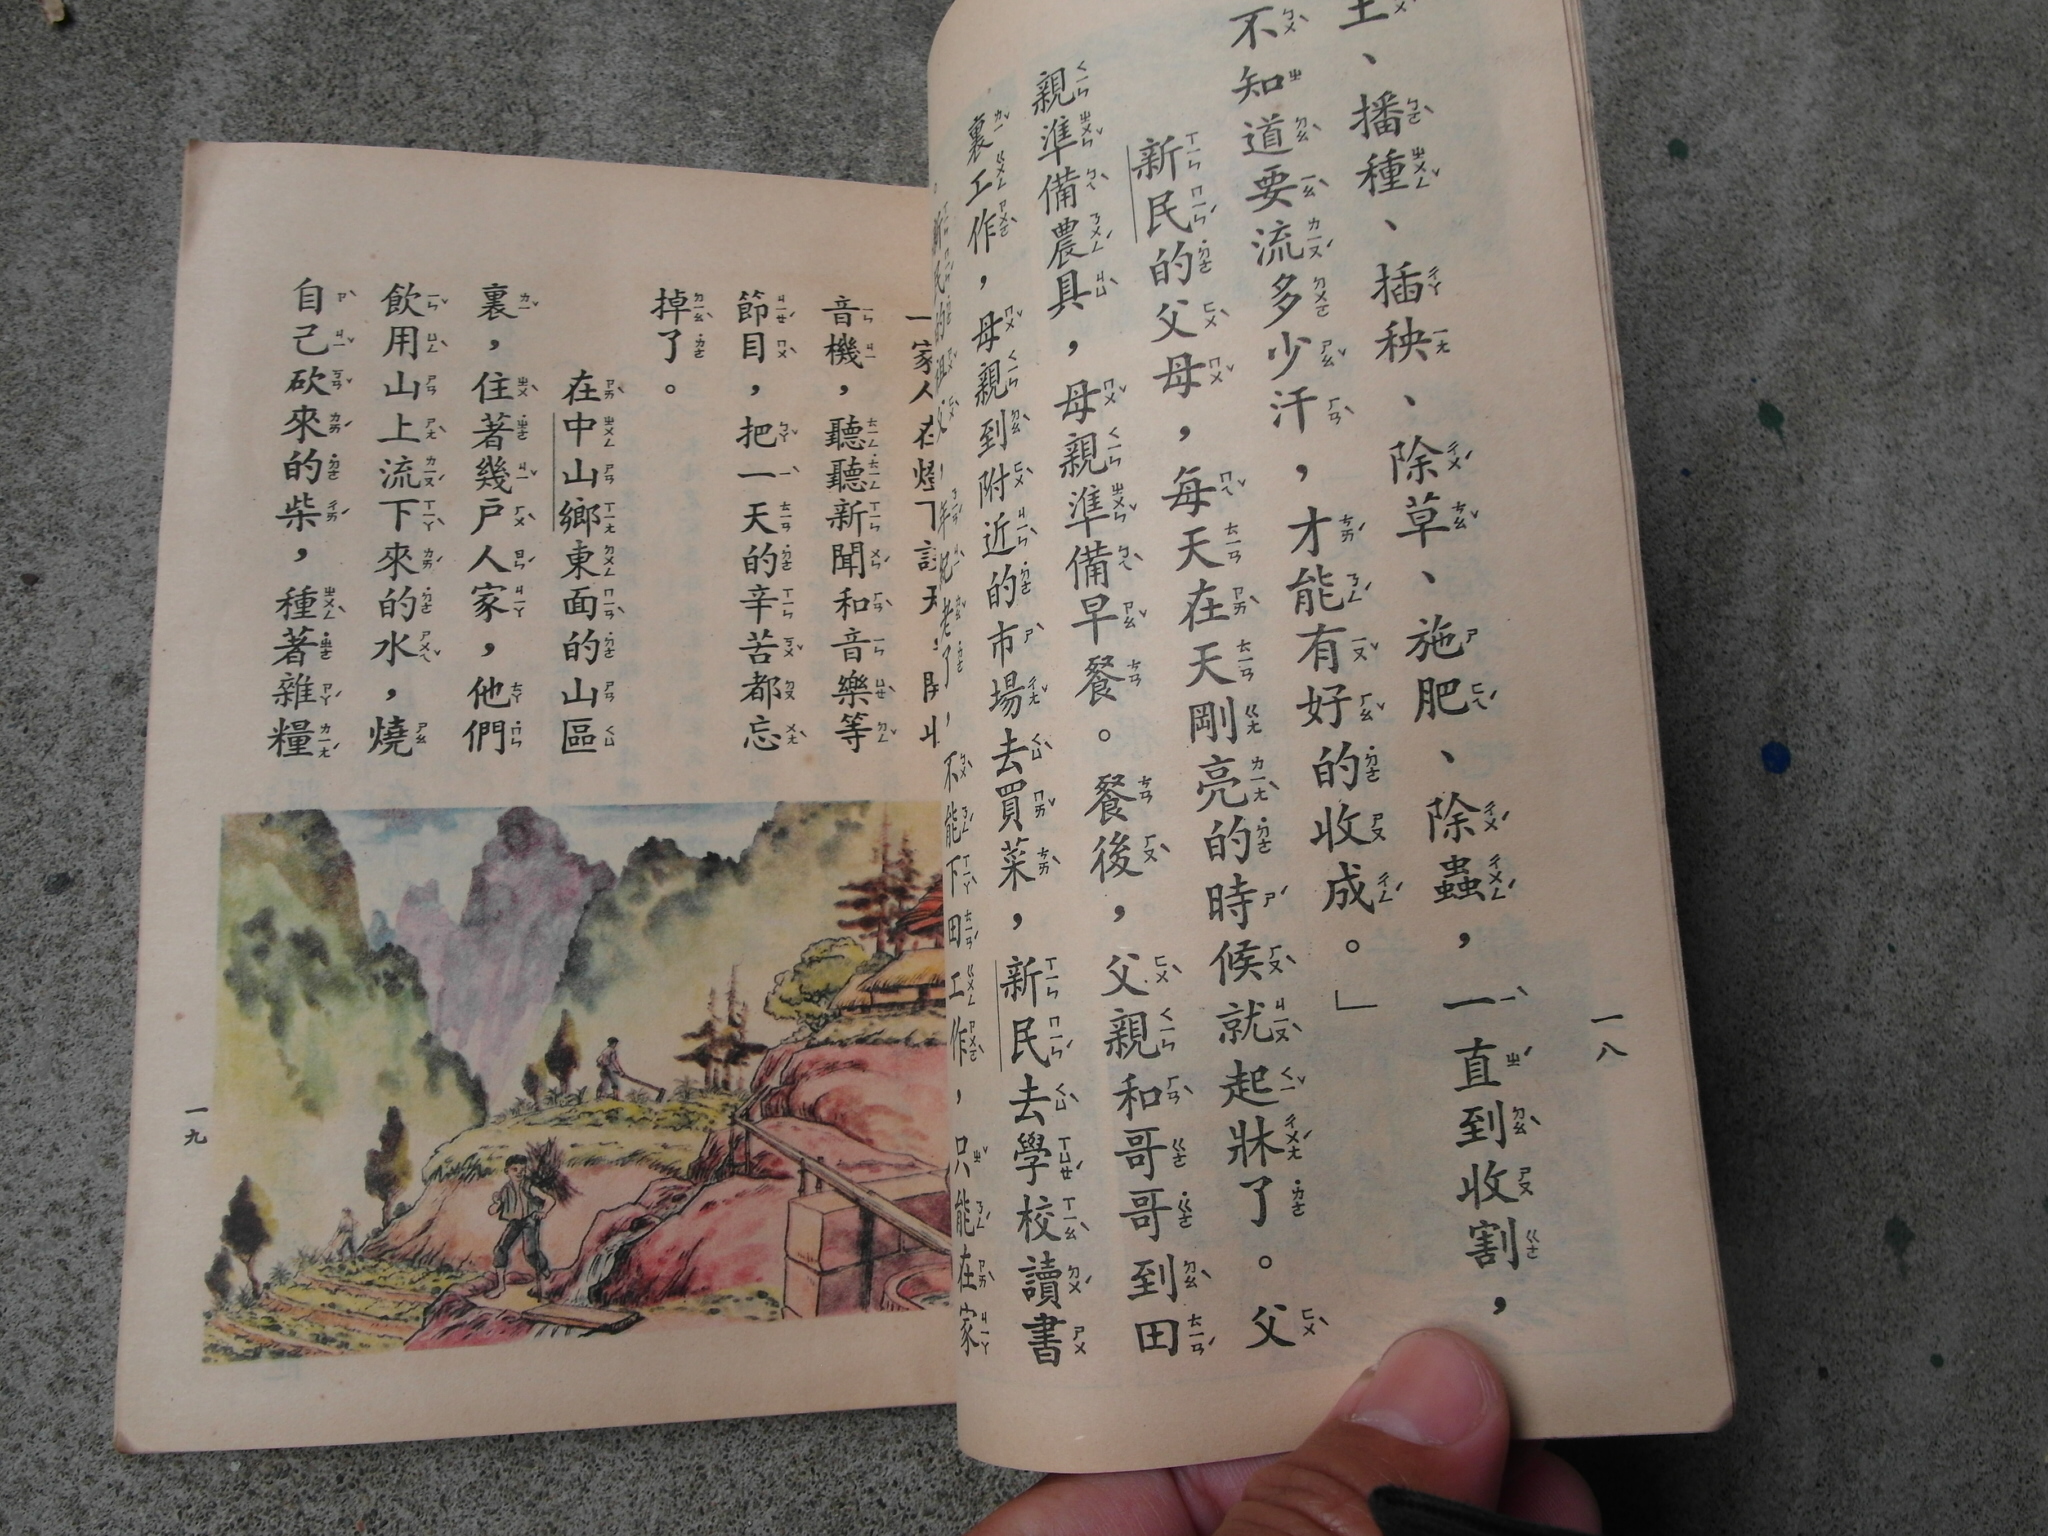 土、播種、插秧、除草、施肥、除蟲，一直到收割，
不知道要流多少汗，才能有好的收成。」
新民的父母，每天在天剛亮的時候就起牀了。父
親準備農具，母親準備早餐。餐後，父親和哥哥到田
裏工作，母親到附近的市場去買菜，新民去學校讀書
。新民的祖父，年紀老了，不能下田工作，只能在家
一八
一家人在燈下談天。
音機，聽聽新聞和音樂等
節目，把一天的辛苦都忘
掉了。
在中山鄉東面的山區
裏，住著幾戶人家，他們
飲用山上流下來的水，燒
自己砍來的柴，種著雜糧
一九